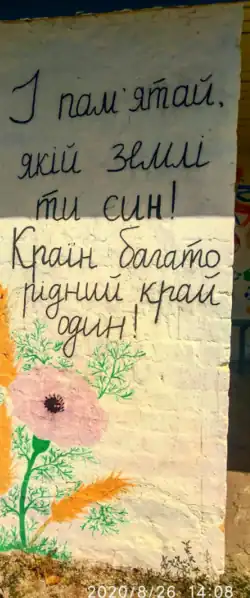 І пам'ятай,
якій землі
ти син!
Країн багато
рідний край-
один!
2020/8/26 14:08